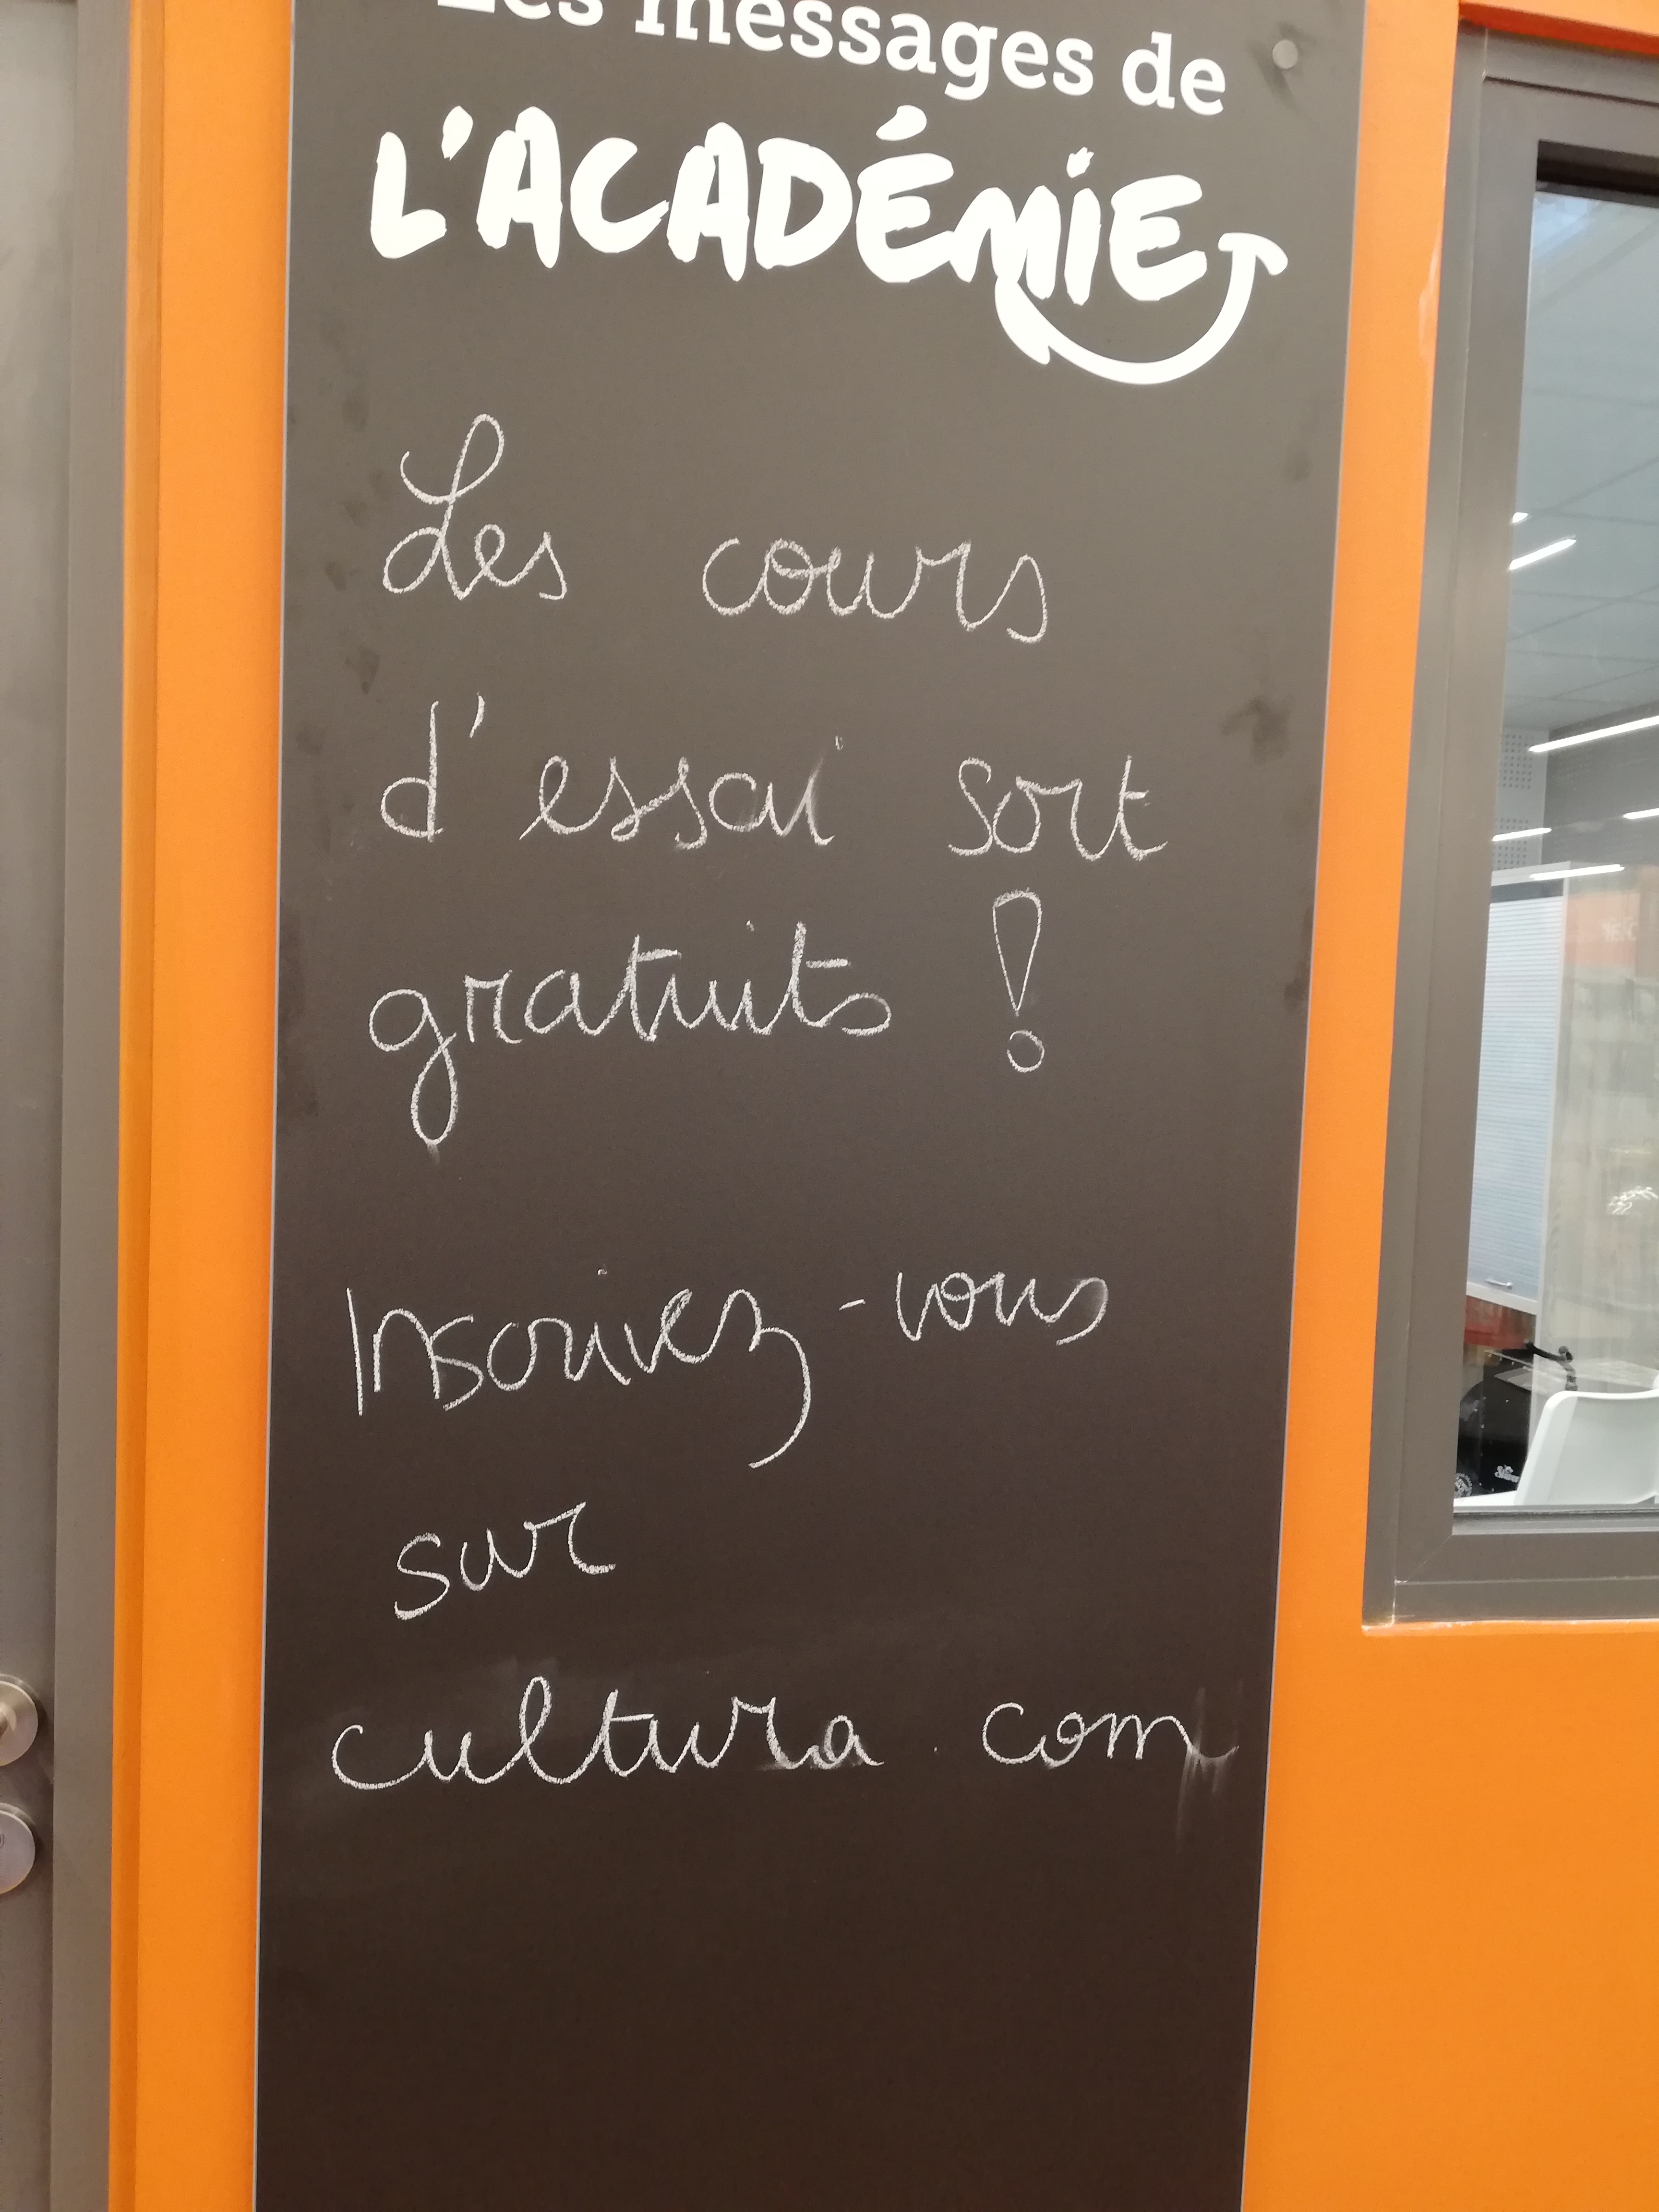 Les messages de
L'ACADÉMIE
Les cours
d'essai sort
gratuits !
Inscrivez-vous
sur
cultura.com